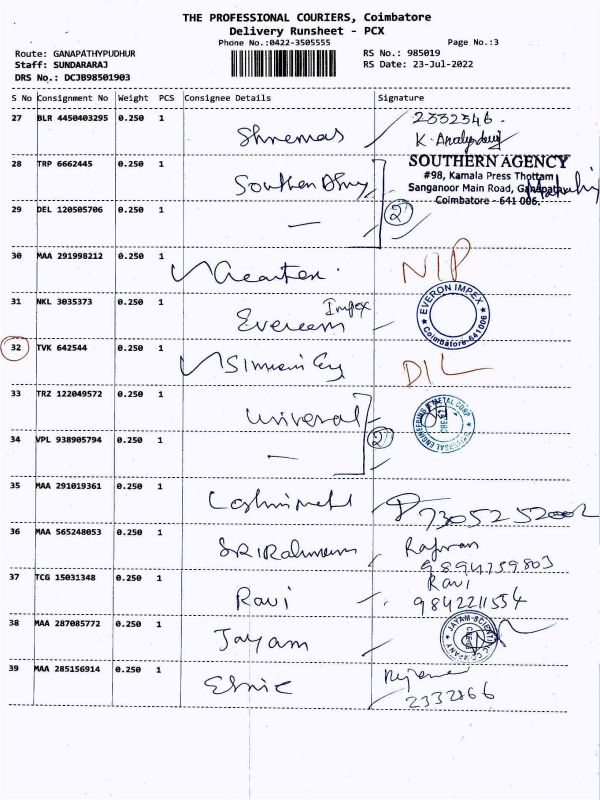 THE PROFESSIONAL COURIERS, Coimbatore
Delivery Runsheet - PCX
Phone No.:0422-3505555
Page No.:3
Route: GANAPATHYPUDHUR
RS No.: 985019
Staff: SUNDARARAJ
RS Date: 23-Jul-2022
DRS No.: DCJB98501903
S No Consignment No Weight PCS Consignee Details Signature
27 BLR 4450403295 0.250 1 2332346
K.
28 TRP 6662445 0.250 1 Southern
SOUTHERN AGENCY
#98, Kamala Press Thottam
Sanganoor Main Road, Ganapathy
Coimbatore - 641 006.
29 DEL 120505706 0.250 1 — 2
30 MAA 291998212 0.250 1 NIP
31 NKL 3035373 0.250 1 Impex
EVERON IMPEX
Coimbatore-641006
32 TVK 642544 0.250 1 DIL
33 TRZ 122049572 0.250 1 Universal
34 VPL 938905794 0.250 1 — 2
35 MAA 291019361 0.250 1 7305252002
36 MAA 565248053 0.250 1
9894759803
37 TCG 15031348 0.250 1 Ravi Ravi
9842211554
38 MAA 287085772 0.250 1 Jayam
JAYAM SCIENTIFIC COMPANY
39 MAA 285156914 0.250 1
2332866